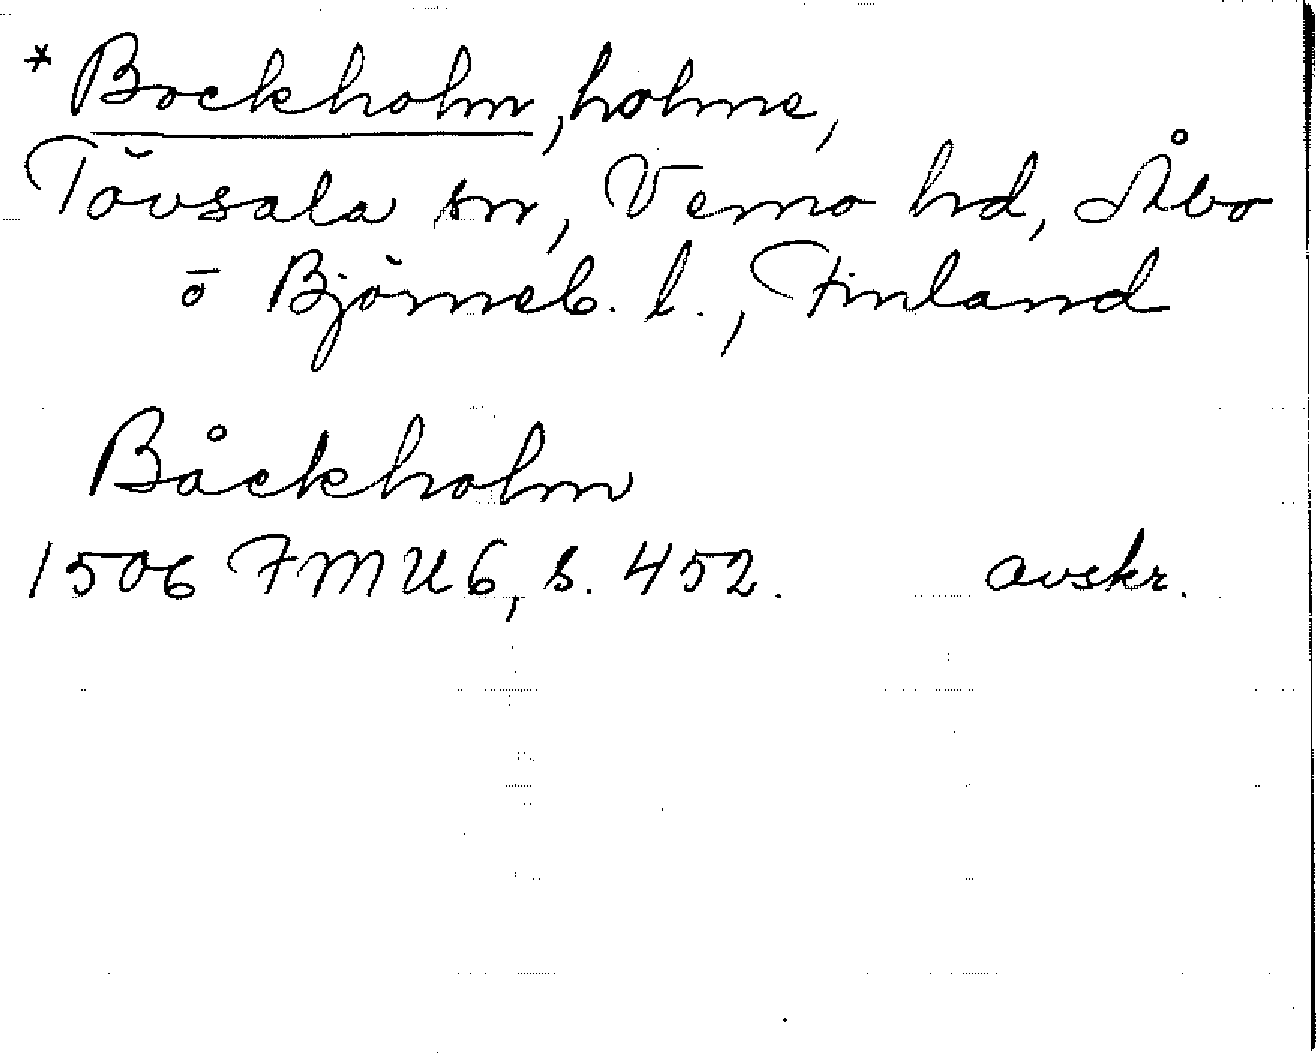 * Bockholm, holme,
Tövsala sn, Vemo hd, Åbo
o Björneb. l., Finland
Båckholm
1506 FMU 6, s. 452. avskr.